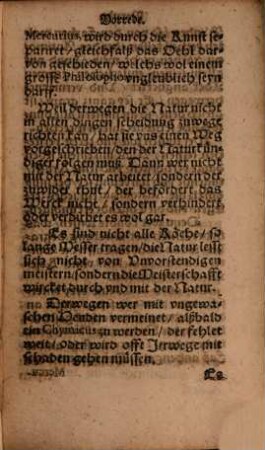 Vorrede.
Mercurius, wird durch die Kunst se-
pariret/ gleichfalß das Oehl dar-
von geschieden/ welchs wol einem
grossen Philosopho vngleublich seyn
darff.
Weil derwegen die Natur nicht
in allen dingen scheidung zuwege
richten kan/ hat sie vns einen Weg
vorgeschrieben/ den der Natur kün-
diger folgen muß. Dann wer nicht
mit der Natur arbeitet/ sondern der
zuwider thut/ der befördert das
Werck nicht/ sondern verhindert
oder verdirbet es wol gar.
Es sind nicht alle Köche/ so
lange Messer tragen/ die Natur lesst
sich nicht von Vnvorstendigen
meistern/ sondern die Meisterschafft
wircket durch vnd mit der Natur.
Derwegen wer mit vngewa-
schenen Henden vermeinet/ alßbald
ein Chymicus zu werden/ der fehlet
weit/ oder wird offt Jerwege mit
schaden gehen müssen.
Es